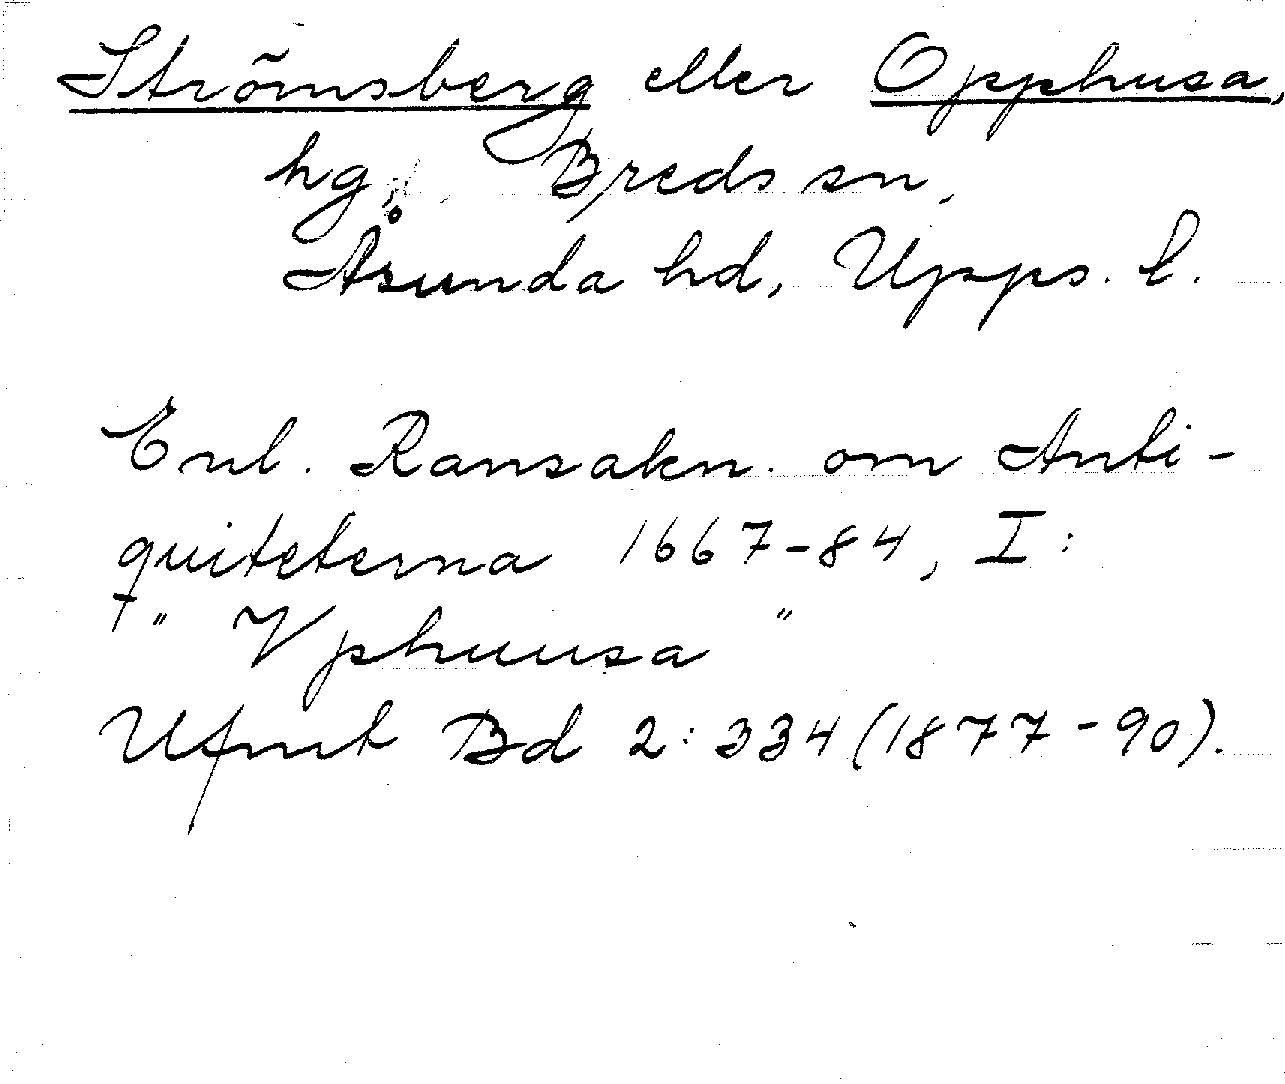 Strömsberg eller Opphusa,
hg, Breds sn,
Åsunda hd, Upps. l.
Enl. Ransakn. om Anti-
quiteterna 1667-84, I:
" Vphuusa "
Ufmt Bd 2:334 (1877-90).